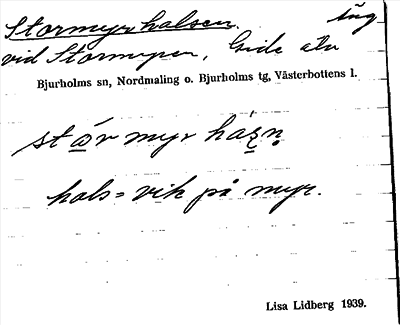 Stormyrhalsen. äng
vid Stormyren, Gide älv
Bjurholms sn, Nordmaling o. Bjurholms tg, Västerbottens l.
stor myr
hals = vik på myr.
Lisa Lidberg 1939.